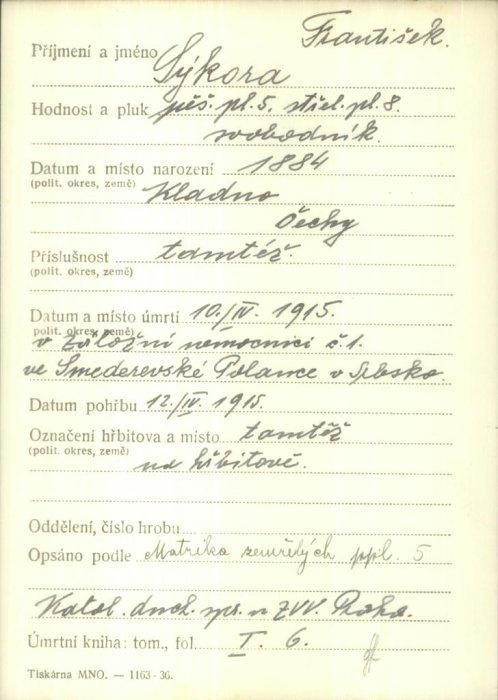 František.
Příjmení a jméno Sýkora
Hodnost a pluk pěš. pl. 5. střel. pl. 8.
svobodník.
Datum a místo narození 1884
(polit. okres, země) Kladno
Čechy
Příslušnost tamtéž.
(polit. okres, země)
Datum a místo úmrtí 10./IV. 1915.
(polit. okres, země)
v Záložní nemocnici č. 1.
ve Smederevské Palance v Srbsko.
Datum pohřbu 12./IV. 1915.
Označení hřbitova a místo tamtéž
(polit. okres, země) na hřbitově.
Oddělení, číslo hrobu
Opsáno podle Matrika zemřelých ppl. 5
Katol. duch. spr. n ZVV. Praha.
Úmrtní kniha: tom., fol. I. 6.
Tiskárna MNO. — 1163-36.